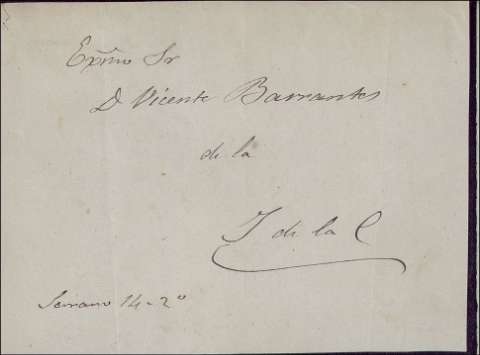 Exṁo Sr
D Vicente Barrantes
de la
J de la C
Serrano 14-2º